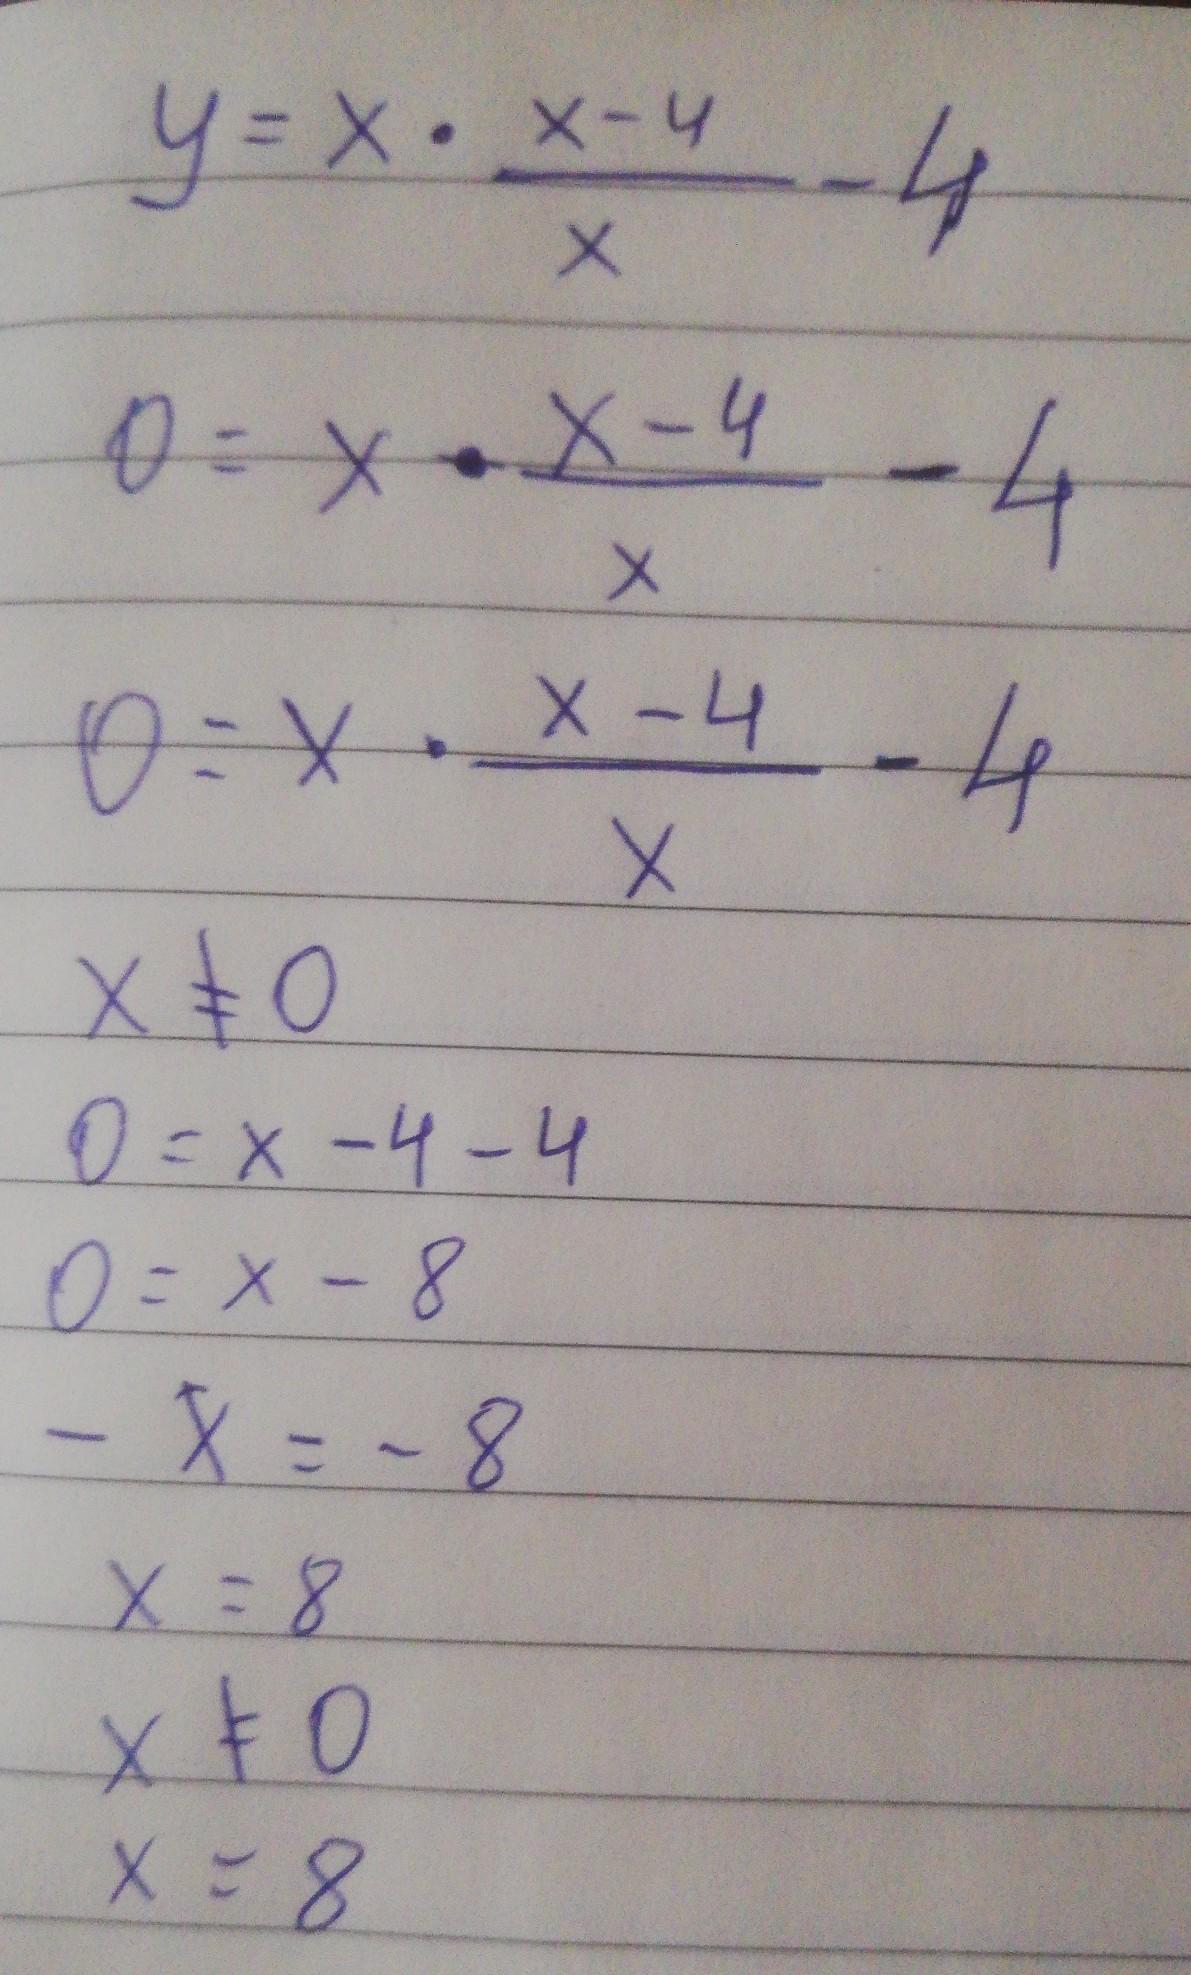 y = x · (x - 4)/x - 4
0 = x · (x - 4)/x - 4
0 = x · (x - 4)/x - 4
x ≠ 0
0 = x - 4 - 4
0 = x - 8
- x = - 8
x = 8
x ≠ 0
x = 8